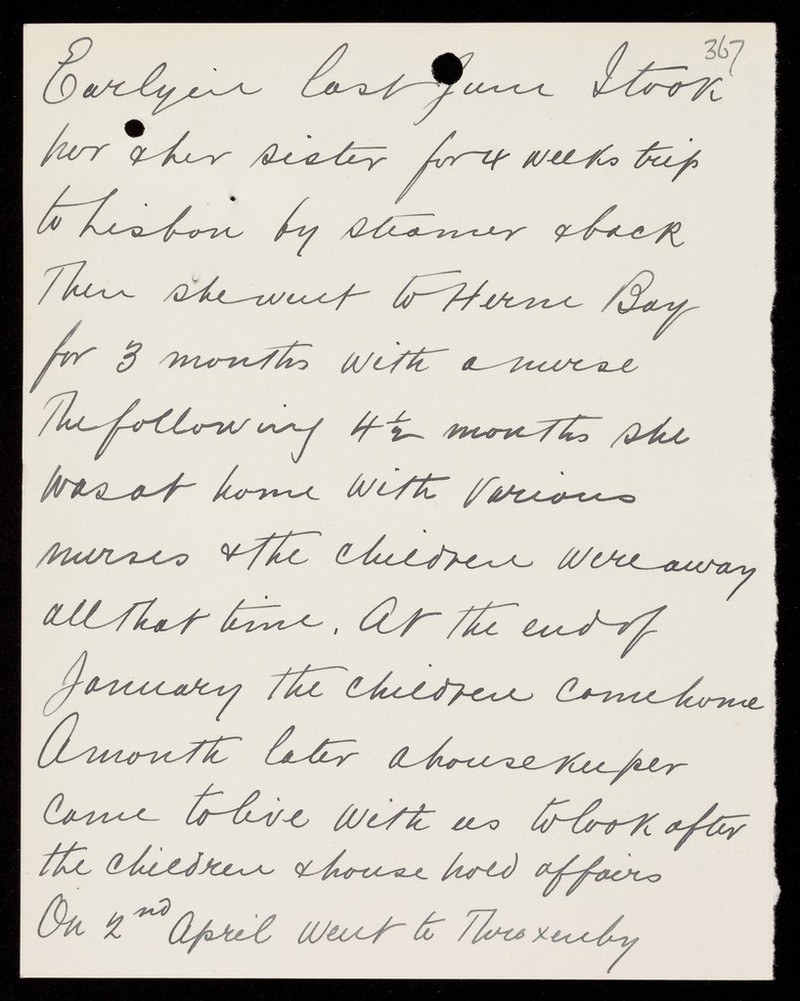 367
Early in last June I took
her & her sister for 4 weeks trip
to Lisbon by steamer & back
Then she went to Herne Bay
for 3 months with a nurse
The following 4½ months she
was at home with various
nurses & the children were away
all that time. At the end of
January the children came home
A month later a housekeeper
came to live with us to look after
the children & house hold affairs
On 2nd April went to Throxenby